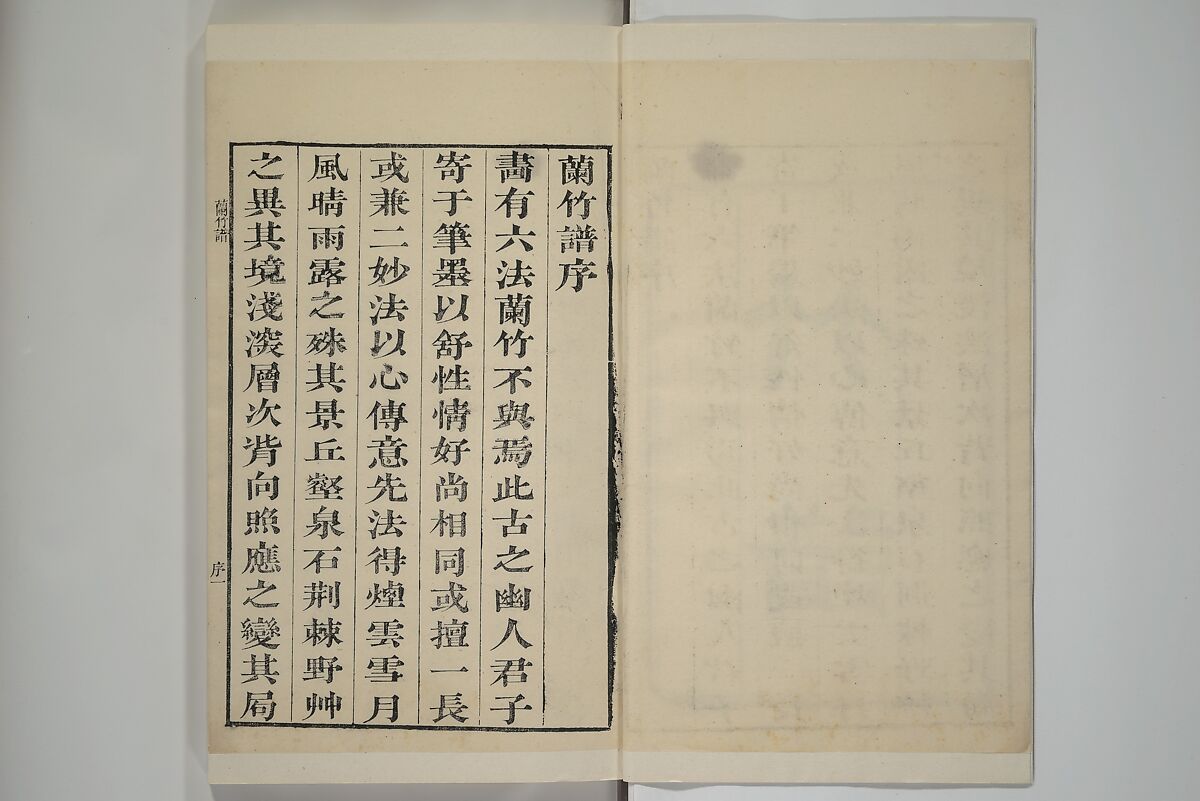 蘭竹譜序
畵有六法蘭竹不與焉此古之幽人君子
寄于筆墨以舒性情好尚相同或擅一長
或兼二妙法以心傳意先法得煙雲雪月
風晴雨露之殊其景丘壑泉石荆棘野艸
之異其境淺深層次背向照應之變其局
蘭竹譜
序一